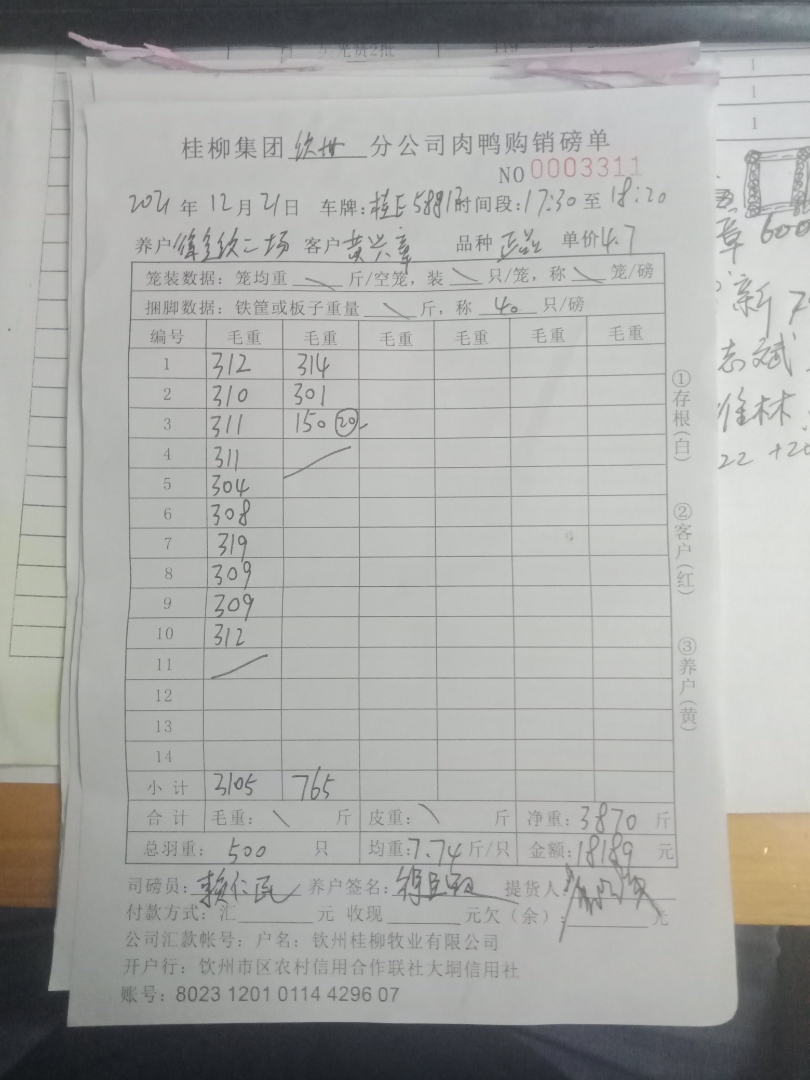 桂柳集团 钦州 分公司肉鸭购销磅单
NO 0003311
2021 年 12 月 21 日 车牌: 时间段: 17:30 至 18:20
养户 客户 黄兴章 品种 正品 单价 4.7
笼装数据: 笼均重 \ 斤/空笼, 装 \ 只/笼, 称 \ 笼/磅
捆脚数据: 铁筐或板子重量 \ 斤, 称 40 只/磅
编号 毛重 毛重 毛重 毛重 毛重 毛重
1 312 314
2 310 301
3 311 150 20
4 311
5 304
6 308
7 319
8 309
9 309
10 312
11
12
13
14
小计 3105 765
合计 毛重: \ 斤 皮重: \ 斤 净重: 3870 斤
总羽重: 500 只 均重: 7.74 斤/只 金额: 18189 元
司磅员: 赖仁民 养户签名: 提货人:
付款方式: 汇 元 收现 元欠(余): 元
公司汇款帐号: 户名: 钦州桂柳牧业有限公司
开户行: 钦州市区农村信用合作联社大垌信用社
账号: 8023 1201 0114 4296 07
①存根(白)
②客户(红)
③养户(黄)
119
1
1
1
章 600
新
志斌
22 +20